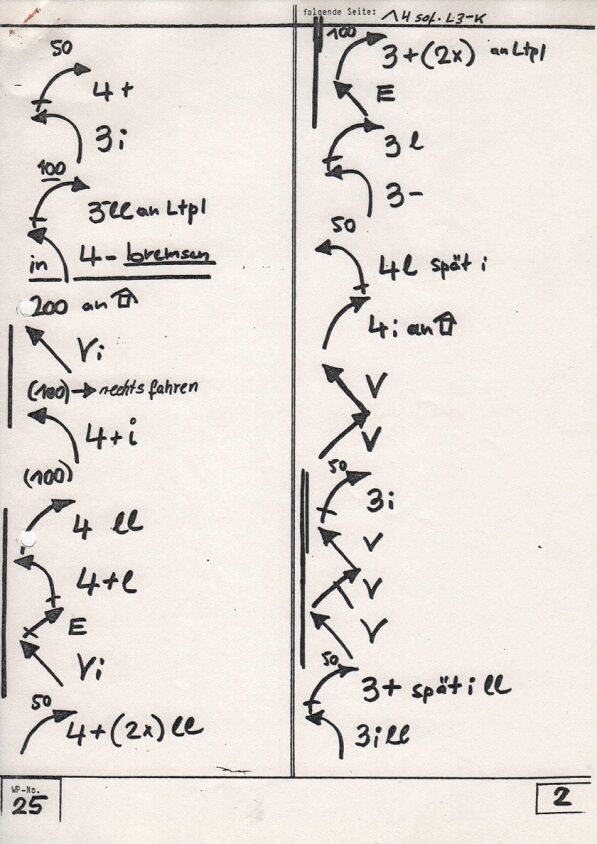 folgende Seite: 14 sof. L3-K
50
4+
3i
100
3-ll an Ltpl
in 4- bremsen
200 an
Vi
(100) → rechts fahren
4+i
(100)
4 ll
4+l
E
Vi
50
4+(2x) ll
WP-No.
25
100
3+(2x) an Ltpl
E
3l
3-
50
4l spät i
4i an
V
V
50
3i
V
V
V
50
3+ spät i ll
3i ll
2